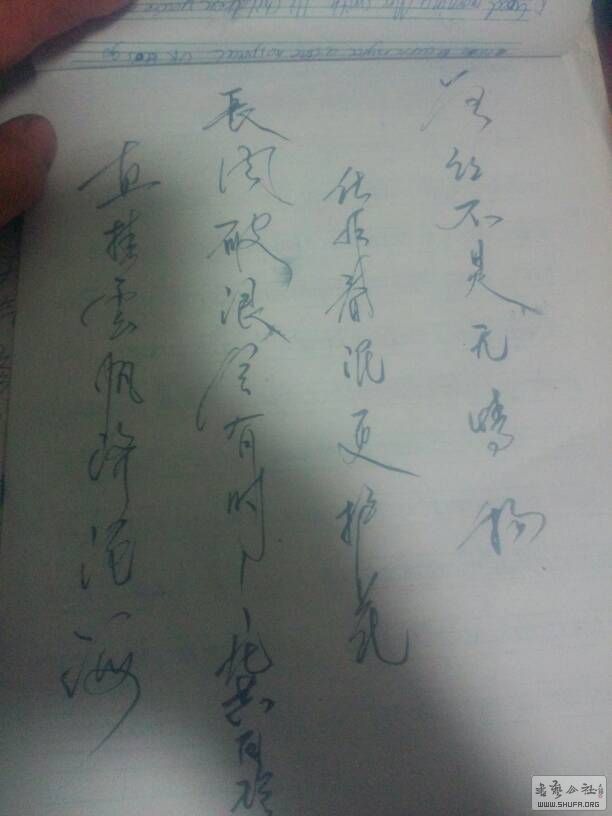 落红不是无情物
化作春泥更护花
長风破浪会有时
直挂雲帆济沧海
书艺公社
WWW.SHUFA.ORG